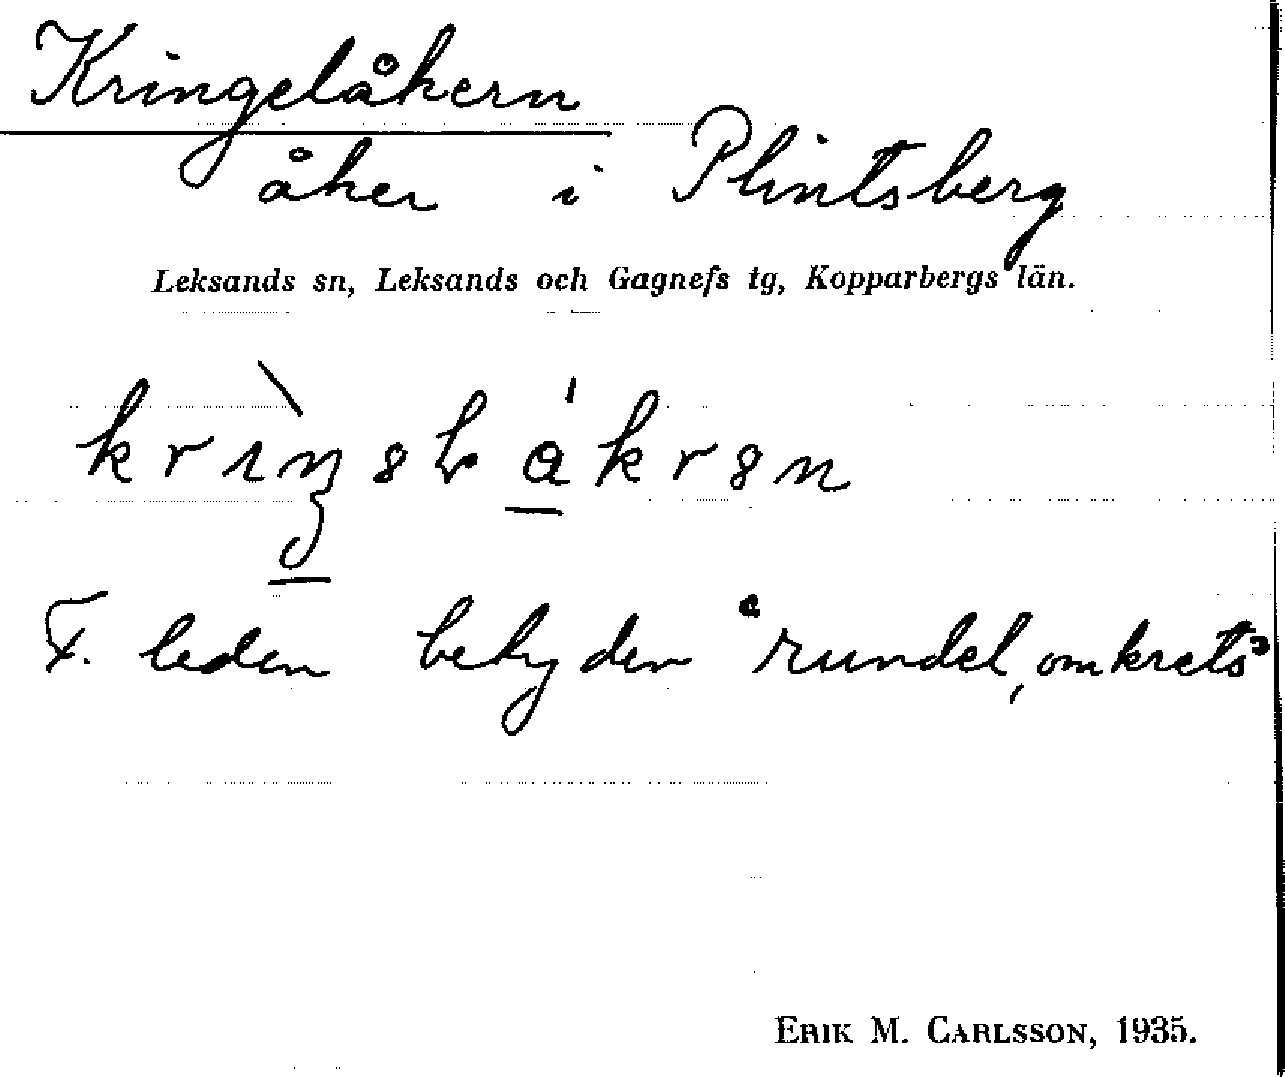 Kringelåkern
åker i Plintsberg
Leksands sn, Leksands och Gagnefs tg, Kopparbergs län.
F. leden betyder "rundel, omkrets"
ERIK M. CARLSSON, 1935.